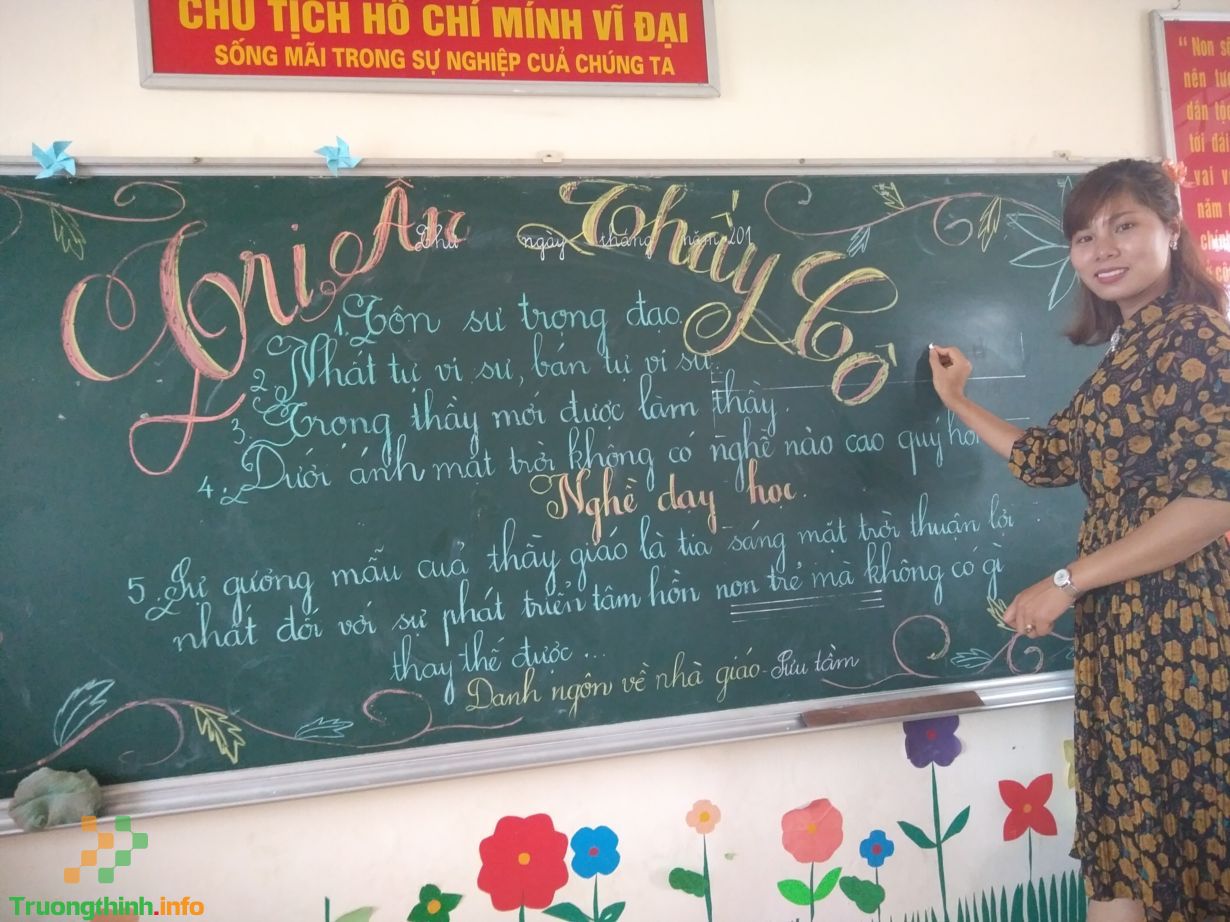 CHỦ TỊCH HỒ CHÍ MINH VĨ ĐẠI
SỐNG MÃI TRONG SỰ NGHIỆP CUẢ CHÚNG TA
“Non s
nên
dân tộc
tới đài
vai v
năm
Tri Ân Thầy Cô
Thứ ngày tháng năm 201
1. Tôn sư trọng đạo.
2. Nhất tự vi sư, bán tự vi sư.
3. Trong thầy mới được làm thầy.
4. Dưới ánh mặt trời không có nghề nào cao quý hơn
Nghề dạy học.
5. Sự gương mẫu cuả thầy giáo là tia sáng mặt trời thuận lợi
nhất đối với sự phát triển tâm hồn non trẻ mà không có gì
thay thế được...
Danh ngôn về nhà giáo - Sưu tầm
Truongthinh.info